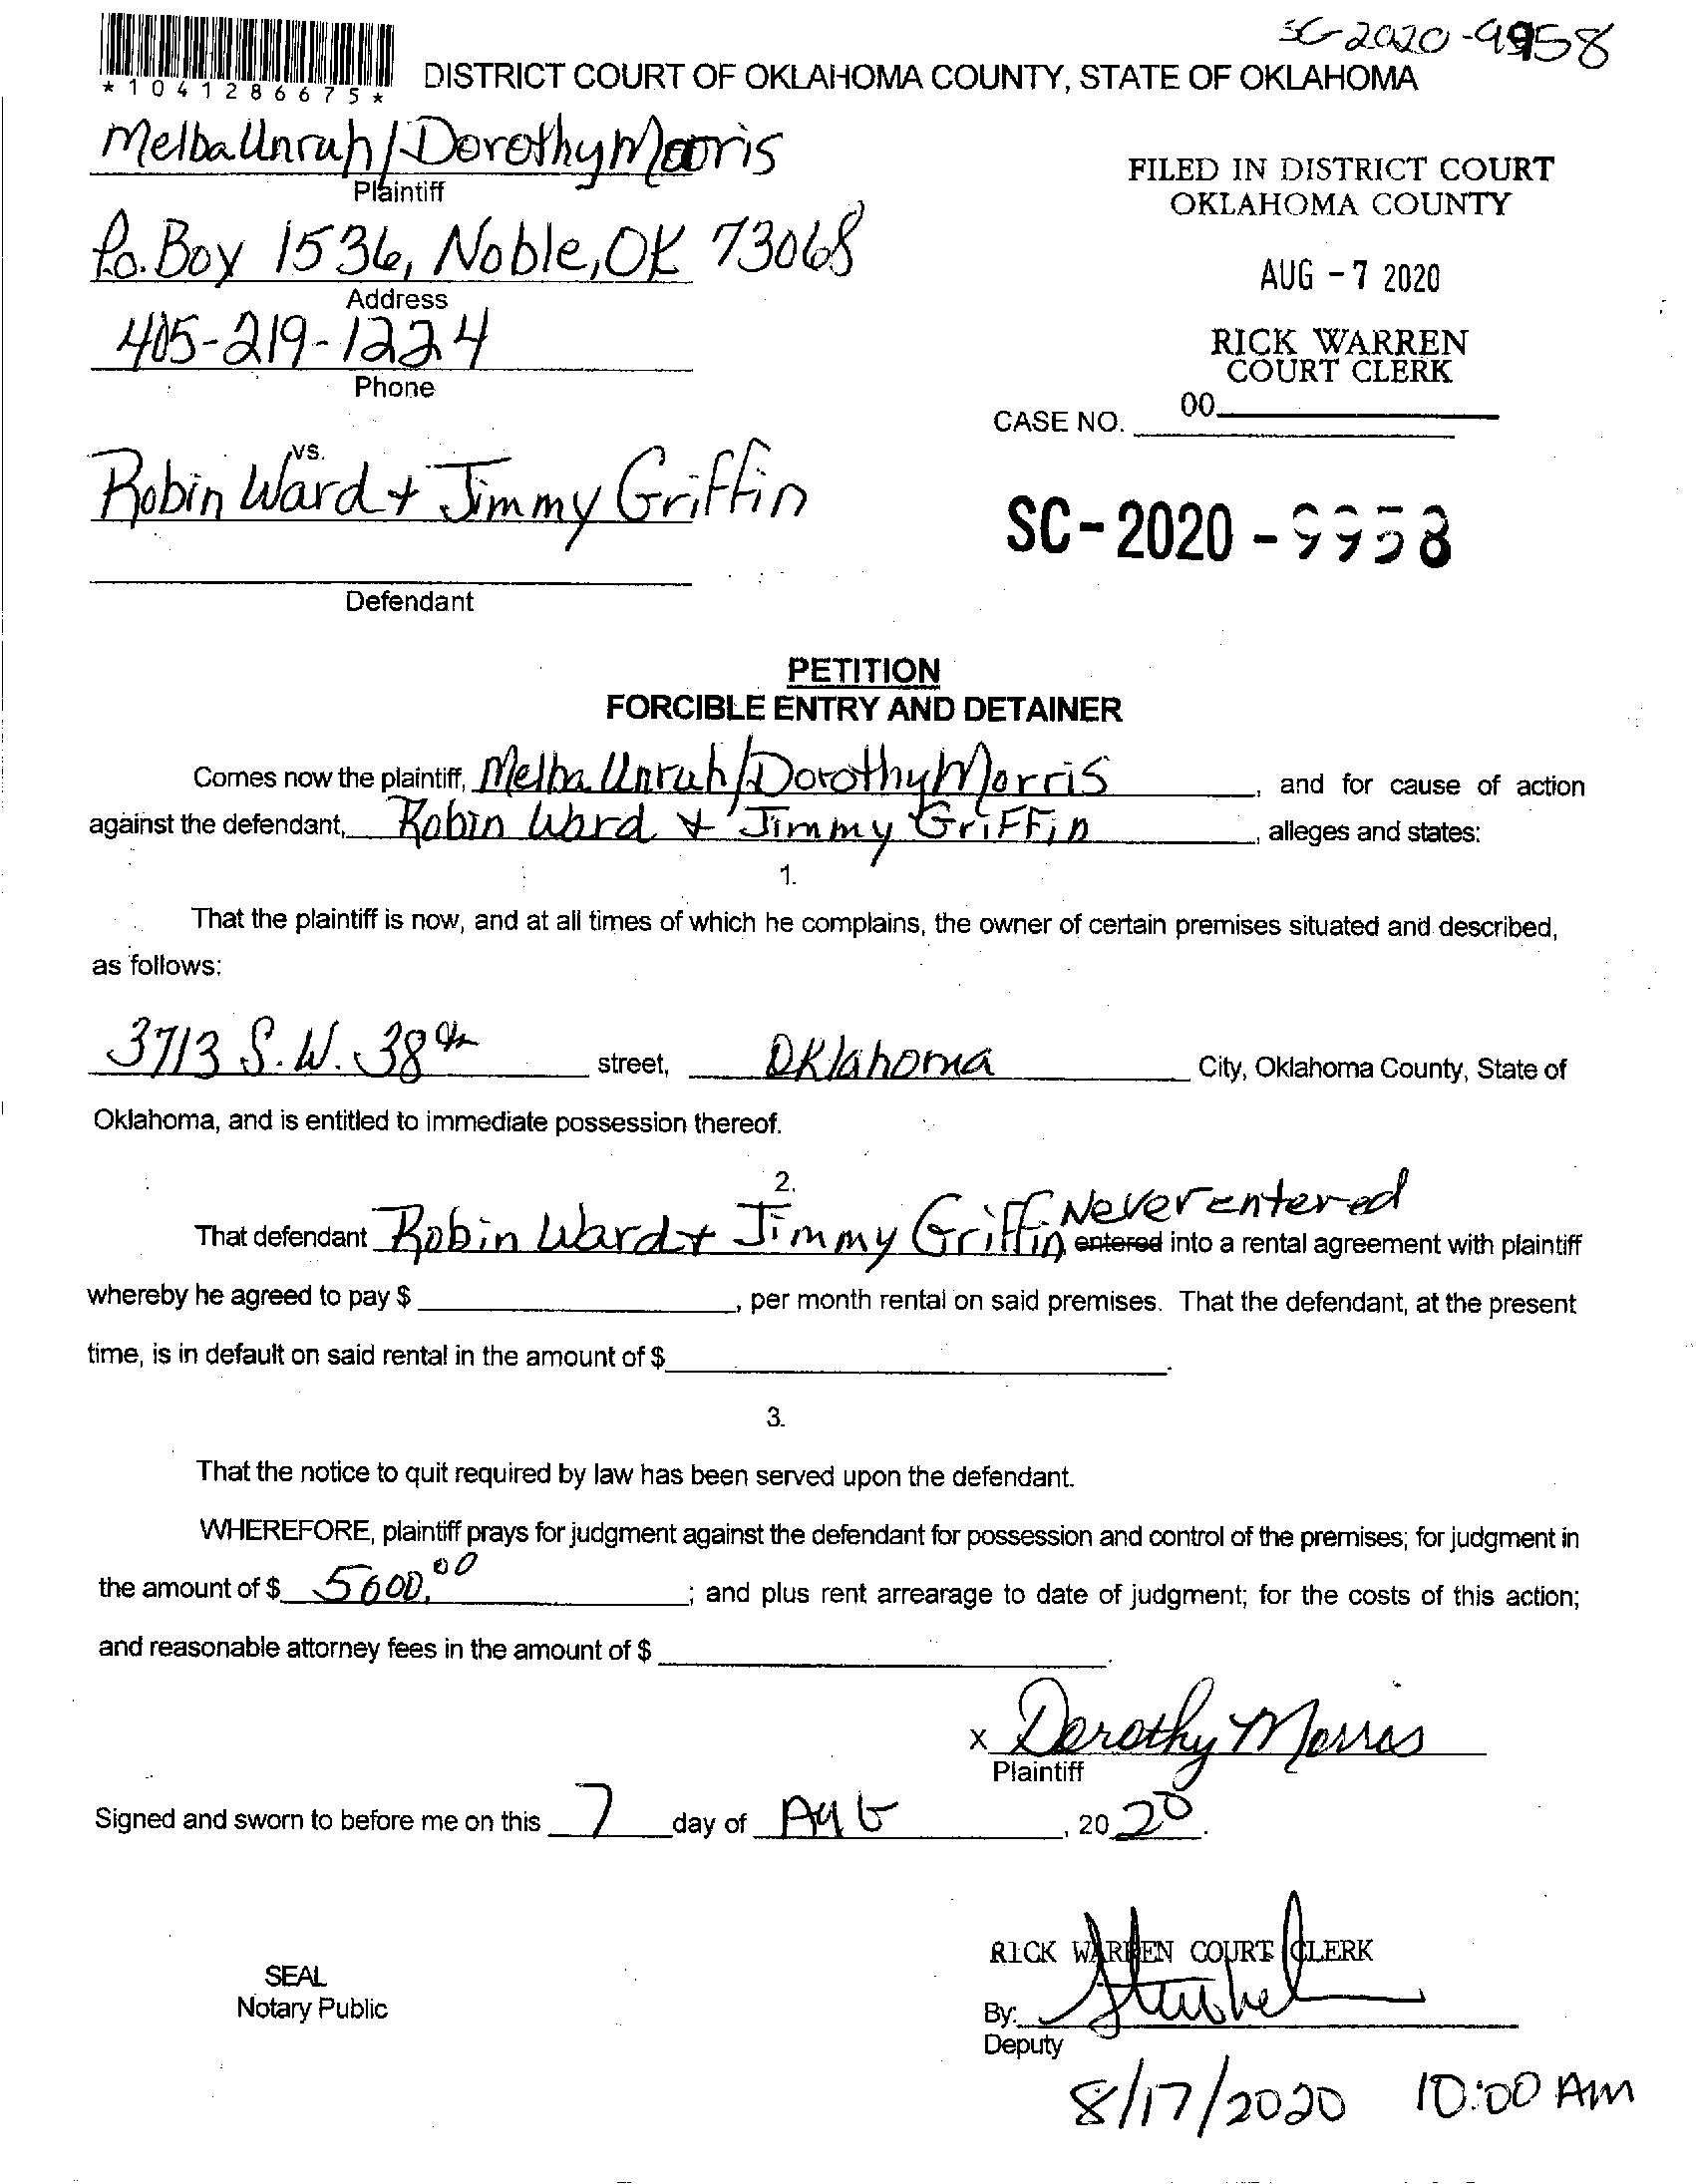 SC-2020-9958
*1041286675*
DISTRICT COURT OF OKLAHOMA COUNTY, STATE OF OKLAHOMA
Melba Unruh/Dorothy Morris
Plaintiff
P.o. Boy 1536, Noble, OK 73068
Address
405-219-1224
Phone
FILED IN DISTRICT COURT
OKLAHOMA COUNTY
AUG - 7 2020
RICK WARREN
COURT CLERK
00
CASE NO.
vs.
Robin Ward + Jimmy Griffin
Defendant
SC-2020-9958
PETITION
FORCIBLE ENTRY AND DETAINER
Comes now the plaintiff, Melba Unruh/Dorothy Morris, and for cause of action
against the defendant, Robin Ward + Jimmy Griffin, alleges and states:
1.
That the plaintiff is now, and at all times of which he complains, the owner of certain premises situated and described,
as follows:
3713 S.W. 38th street, Oklahoma City, Oklahoma County, State of
Oklahoma, and is entitled to immediate possession thereof.
2.
Never entered
That defendant Robin Ward + Jimmy Griffin entered into a rental agreement with plaintiff
whereby he agreed to pay $, per month rental on said premises. That the defendant, at the present
time, is in default on said rental in the amount of $.
3.
That the notice to quit required by law has been served upon the defendant.
WHEREFORE, plaintiff prays for judgment against the defendant for possession and control of the premises; for judgment in
the amount of $ 5600.00; and plus rent arrearage to date of judgment; for the costs of this action;
and reasonable attorney fees in the amount of $.
x Dorothy Morris
Plaintiff
Signed and sworn to before me on this 7 day of Aug, 2020.
SEAL
Notary Public
RICK WARREN COURT CLERK
By:
Deputy
8/17/2020 10:00 AM